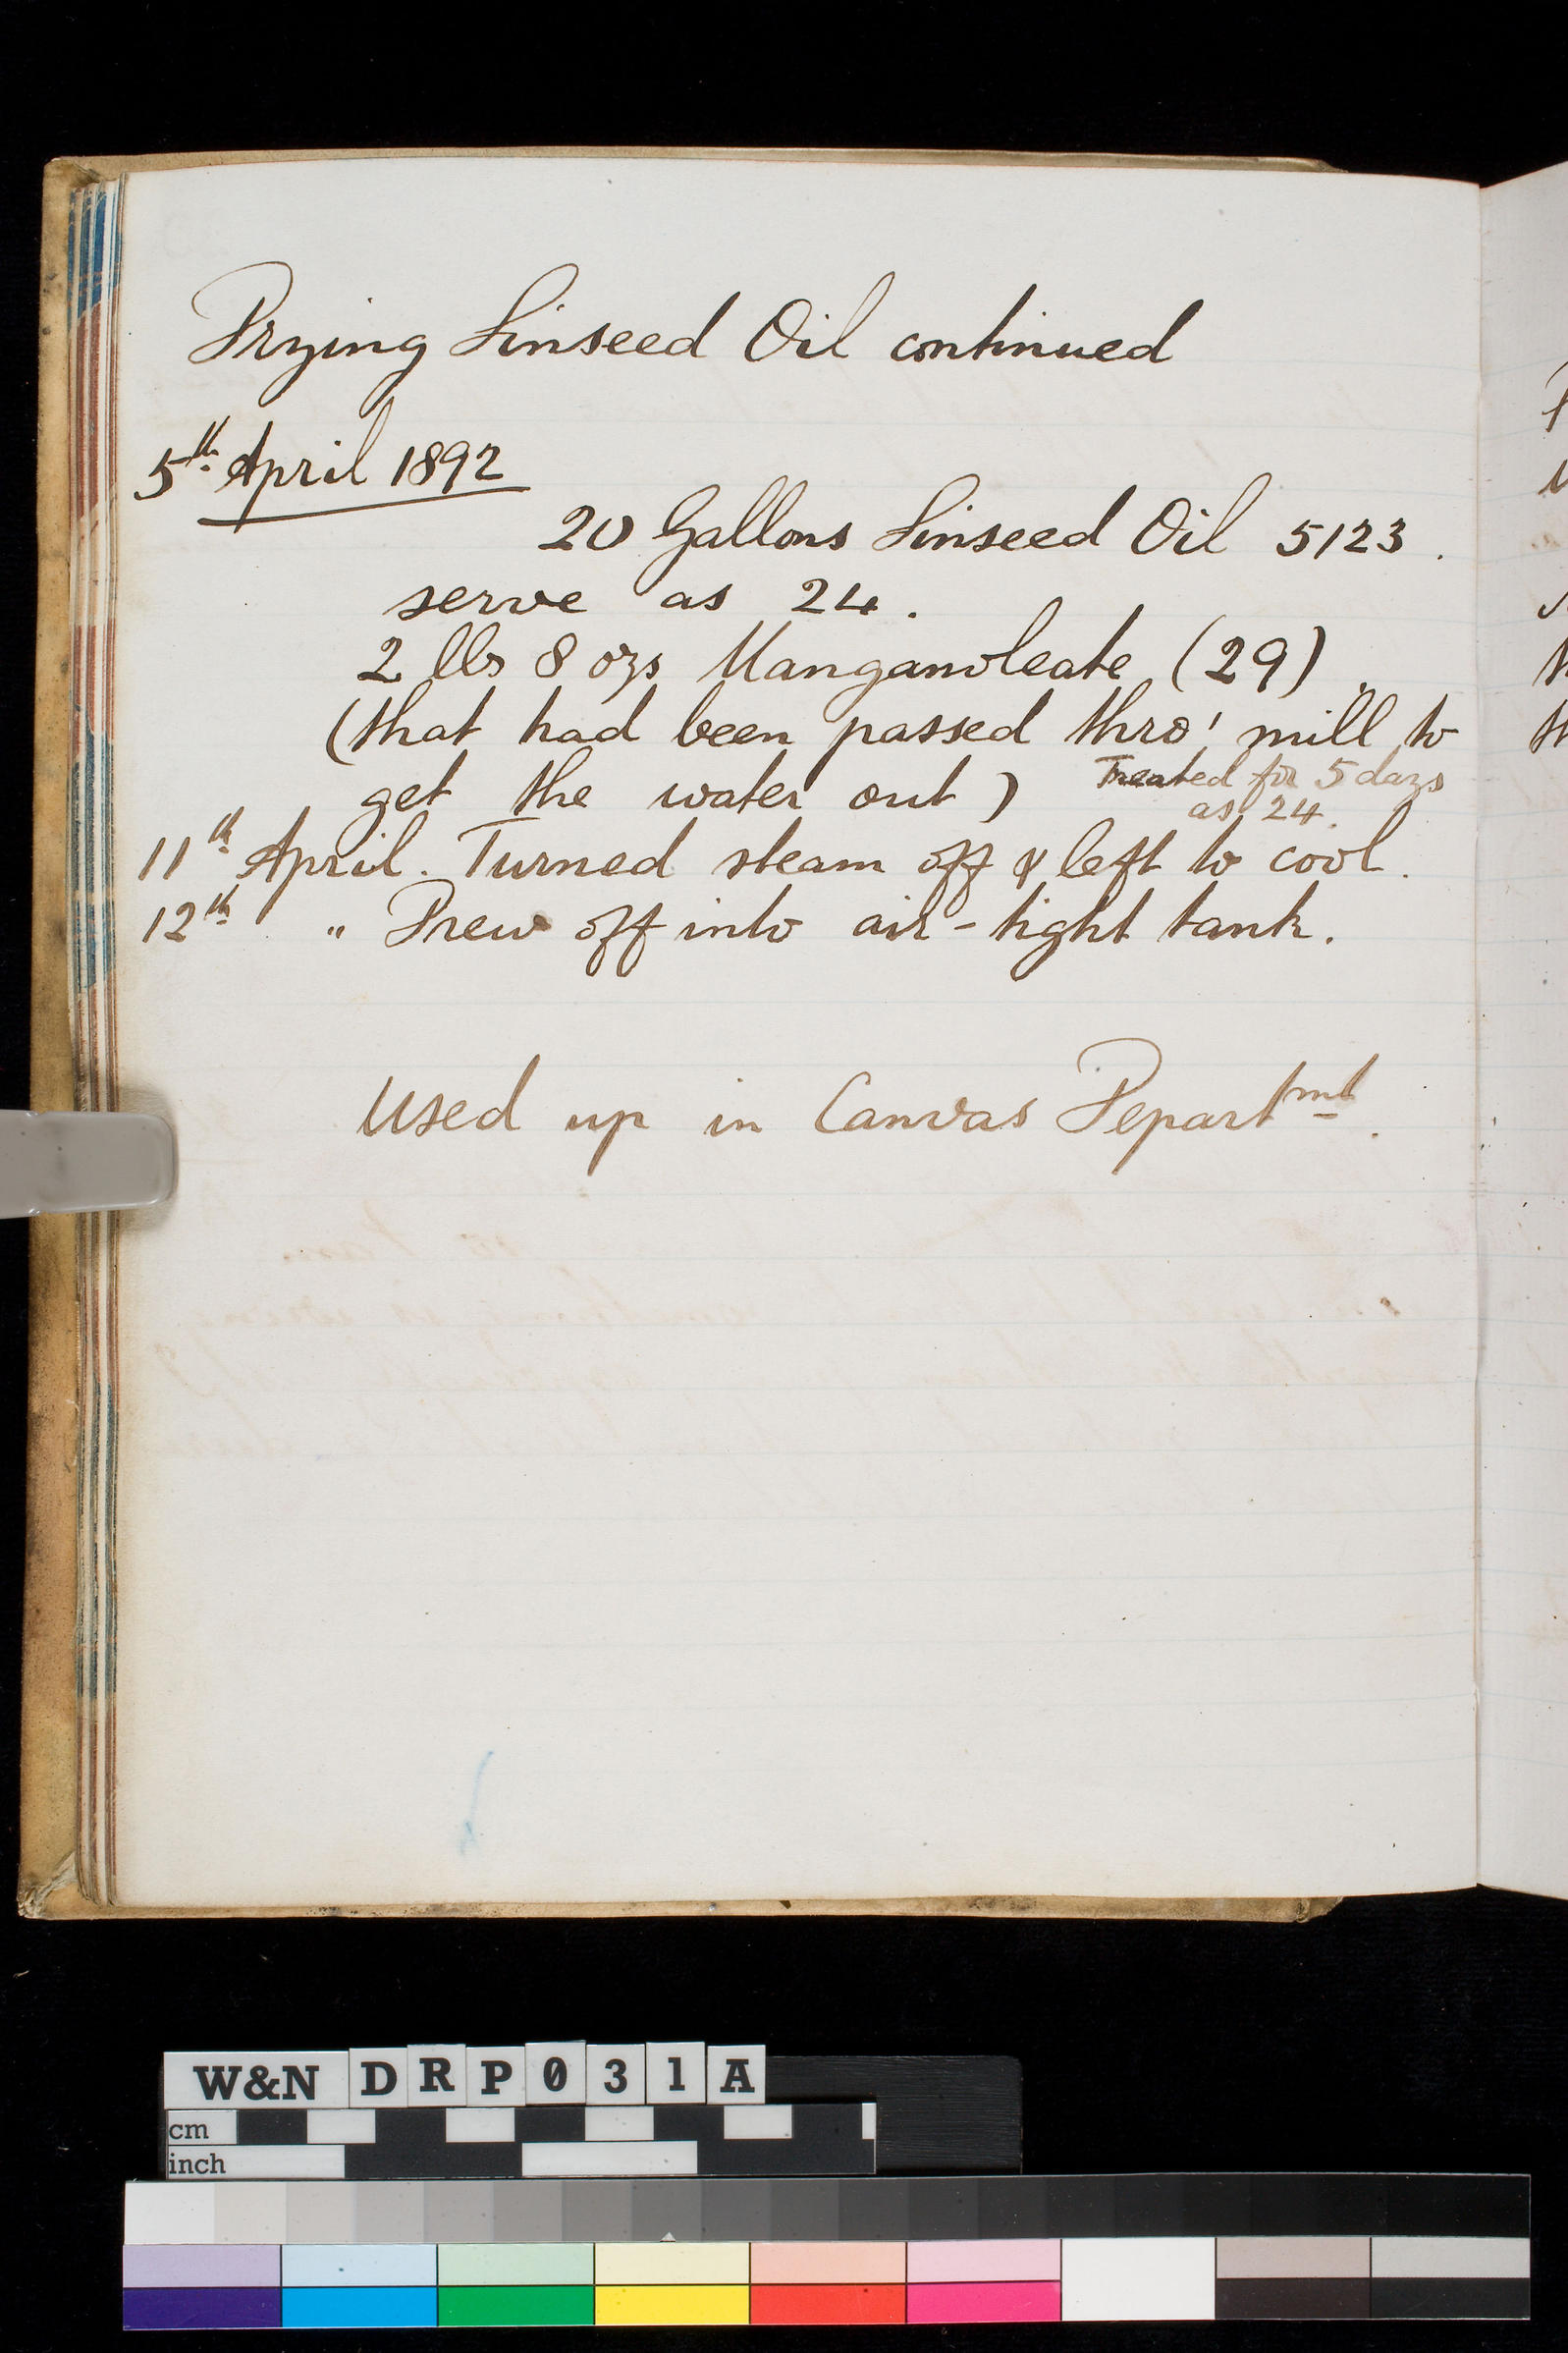 Drying Linseed Oil continued
5th April 1892
20 Gallons Linseed Oil 5123.
serve as 24.
2 lbs 8 ozs Manganoleate (29).
(that had been passed thro' mill to
get the water out) Treated for 5 days
as 24.
11th April. Turned steam off & left to cool.
12th " Drew off into air-tight tank.
Used up in Canvas Departmt.
W&N DRP031A
cm
inch